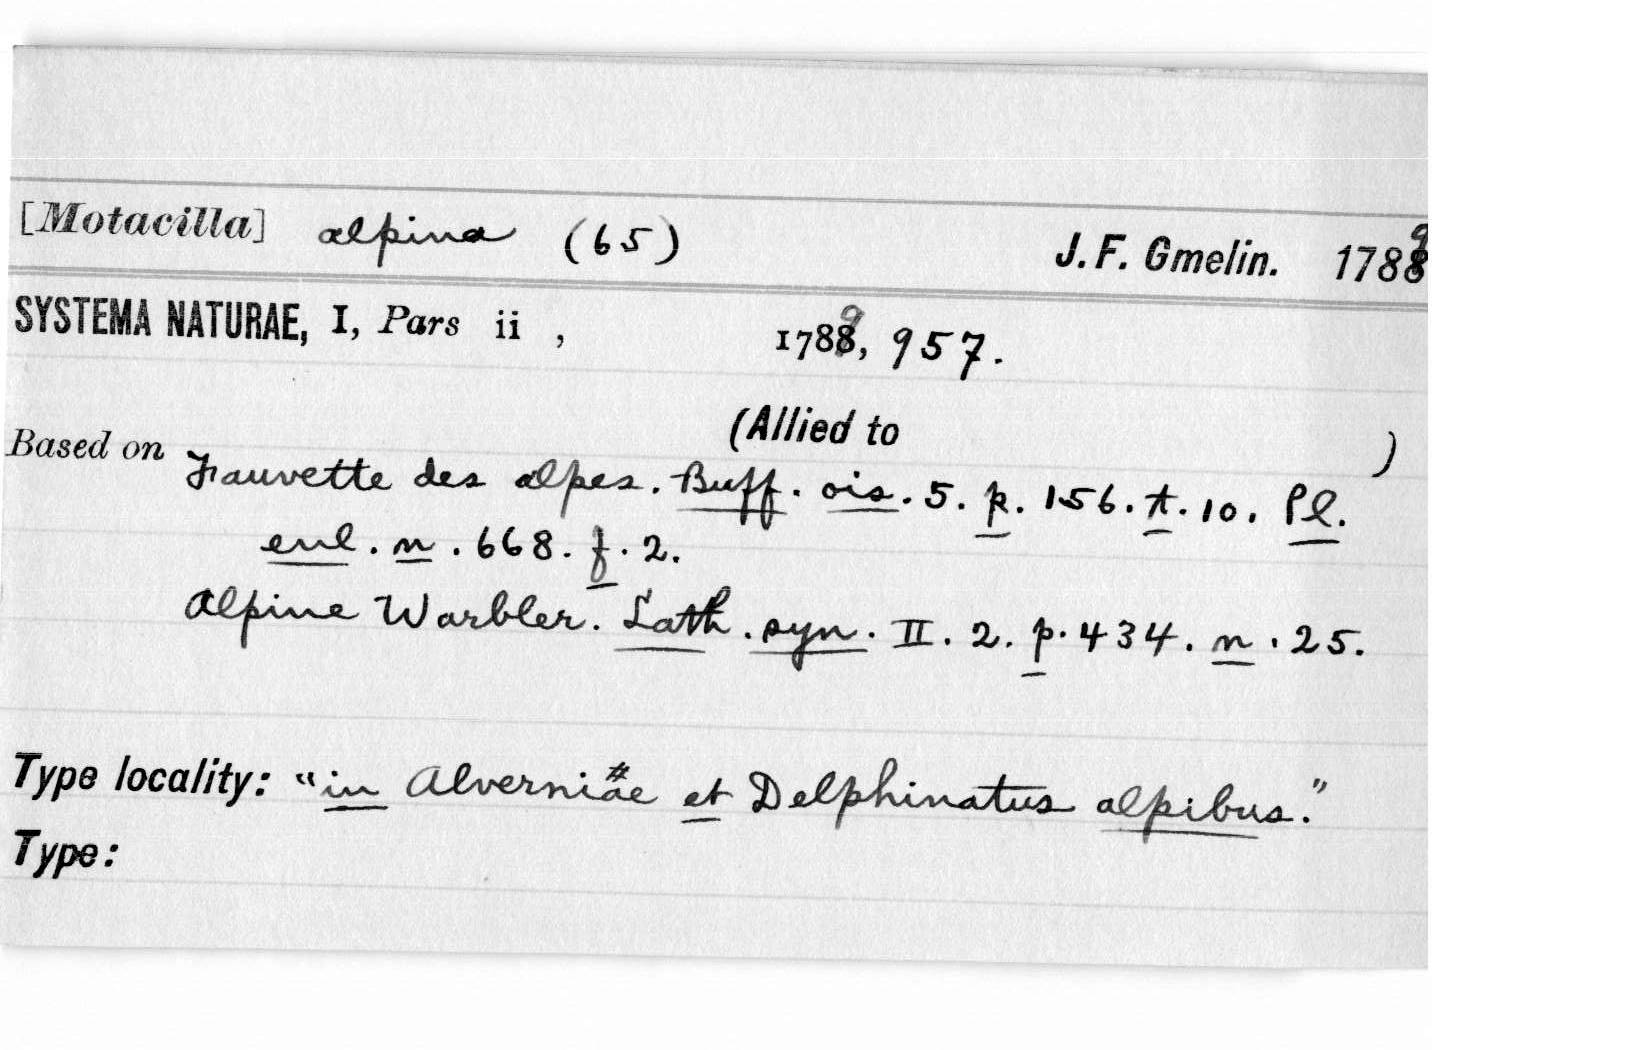 [Motacilla] alpina (65) J. F. Gmelin. 1789
SYSTEMA NATURAE, I, Pars ii , 1789, 957.
(Allied to )
Based on Fauvette des alpes. Buff. ois. 5. p. 156. t. 10. Pl.
enl. n. 668. f. 2.
Alpine Warbler. Lath. syn. II. 2. p. 434. n. 25.
Type locality: "in Alverniae et Delphinatus alpibus."
Type: